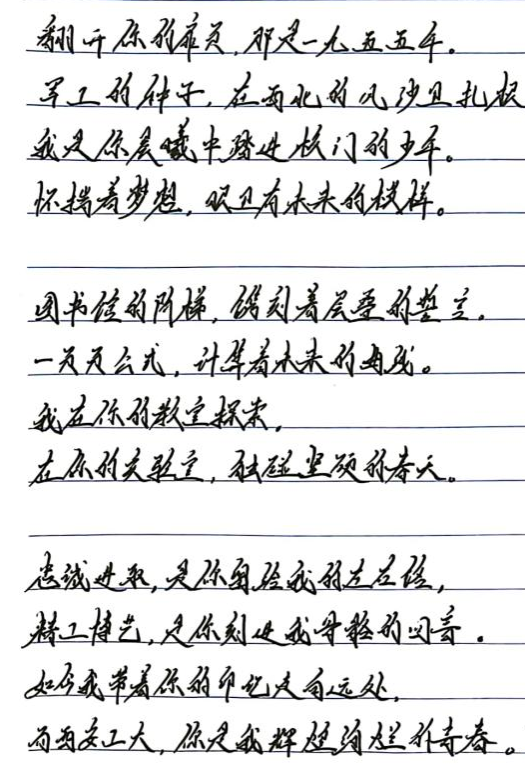 翻开你的扉页,那是一九五五年。
军工的种子,在西北的风沙里扎根
我是你晨曦中踏进校门的少年。
怀揣着梦想,眼里有未来的模样。
图书馆的阶梯,镌刻着层叠的誓言。
一页页公式,计算着未来的曲线。
我在你的教室探索,
在你的实验室,触碰坚硬的春天。
忠诚进取,是你留给我的左右铭,
精工博艺,是你刻进我骨骼的回音。
如今我带着你的印记走向远处,
而西安工大,你是我辉煌绚烂的青春。